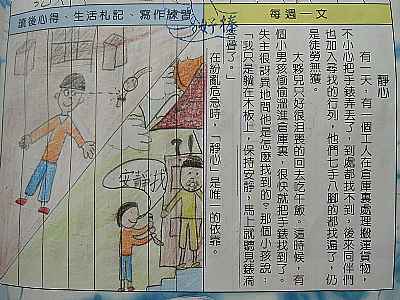 每週一文
靜心
有一天，有一個工人在倉庫裏處理搬運貨物，
不小心把手錶弄丟了，到處都找不到，後來同伴們
也加入尋找的行列，他們七手八腳的都找遍了，仍
是徒勞無獲。
大夥兒只好很沮喪的回去吃午飯。這時候，有
個小男孩偷偷溜進倉庫裏，很快就把手錶找到了。
失主很訝異地問他是怎麼找到的？那個小孩說：
「我只是躺在木板上，保持安靜，馬上就聽見錶滴
聲了。」
在紛亂危急時，「靜心」是唯一的依靠。
讀後心得、生活札記、寫作練習
好棒
安靜找